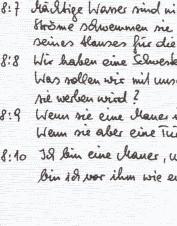 8:7 Mächtige Wasser sind ni
Ströme schwemmen sie
seines Hauses für die
8:8 Wir haben eine Schwest
Was sollen wir mit unse
sie werben wird?
8:9 Wenn sie eine Mauer
Wenn sie aber eine Tür
8:10 Ich bin eine Mauer, u
bin ich vor ihm wie e